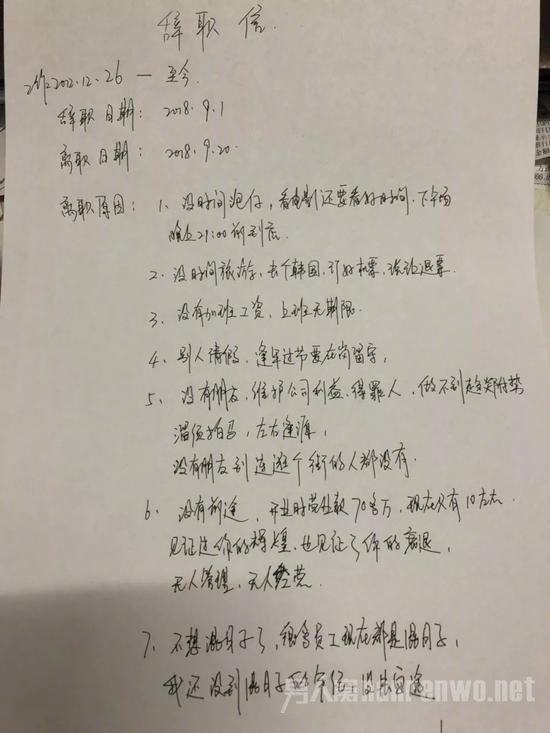 辞职信.
工作2012.12.26 — 至今.
辞职日期: 2018.9.1
离职日期: 2018.9.20.
离职原因: 1、没时间泡仔,看电影还要看好时间.下午场
晚上21:00前到店.
2、没时间旅游,去个韩国,订好机票,被迫退票.
3、没有加班工资,上班无期限.
4、别人请假,逢年过节要在岗留守,
5、没有朋友,维护公司利益.得罪人,做不到趋炎附势
溜须拍马,左右逢源,
没有朋友到连逛个街的人都没有.
6、没有前途,开业时营业额70多万,现在只有10左右.
见证过你的辉煌,也见证了你的衰退,
无人管理,无人经营.
7、不想混日子了,很多员工现在都是混日子,
我还没到混日子的年纪,没法前途
男人窝nanrenwo.net